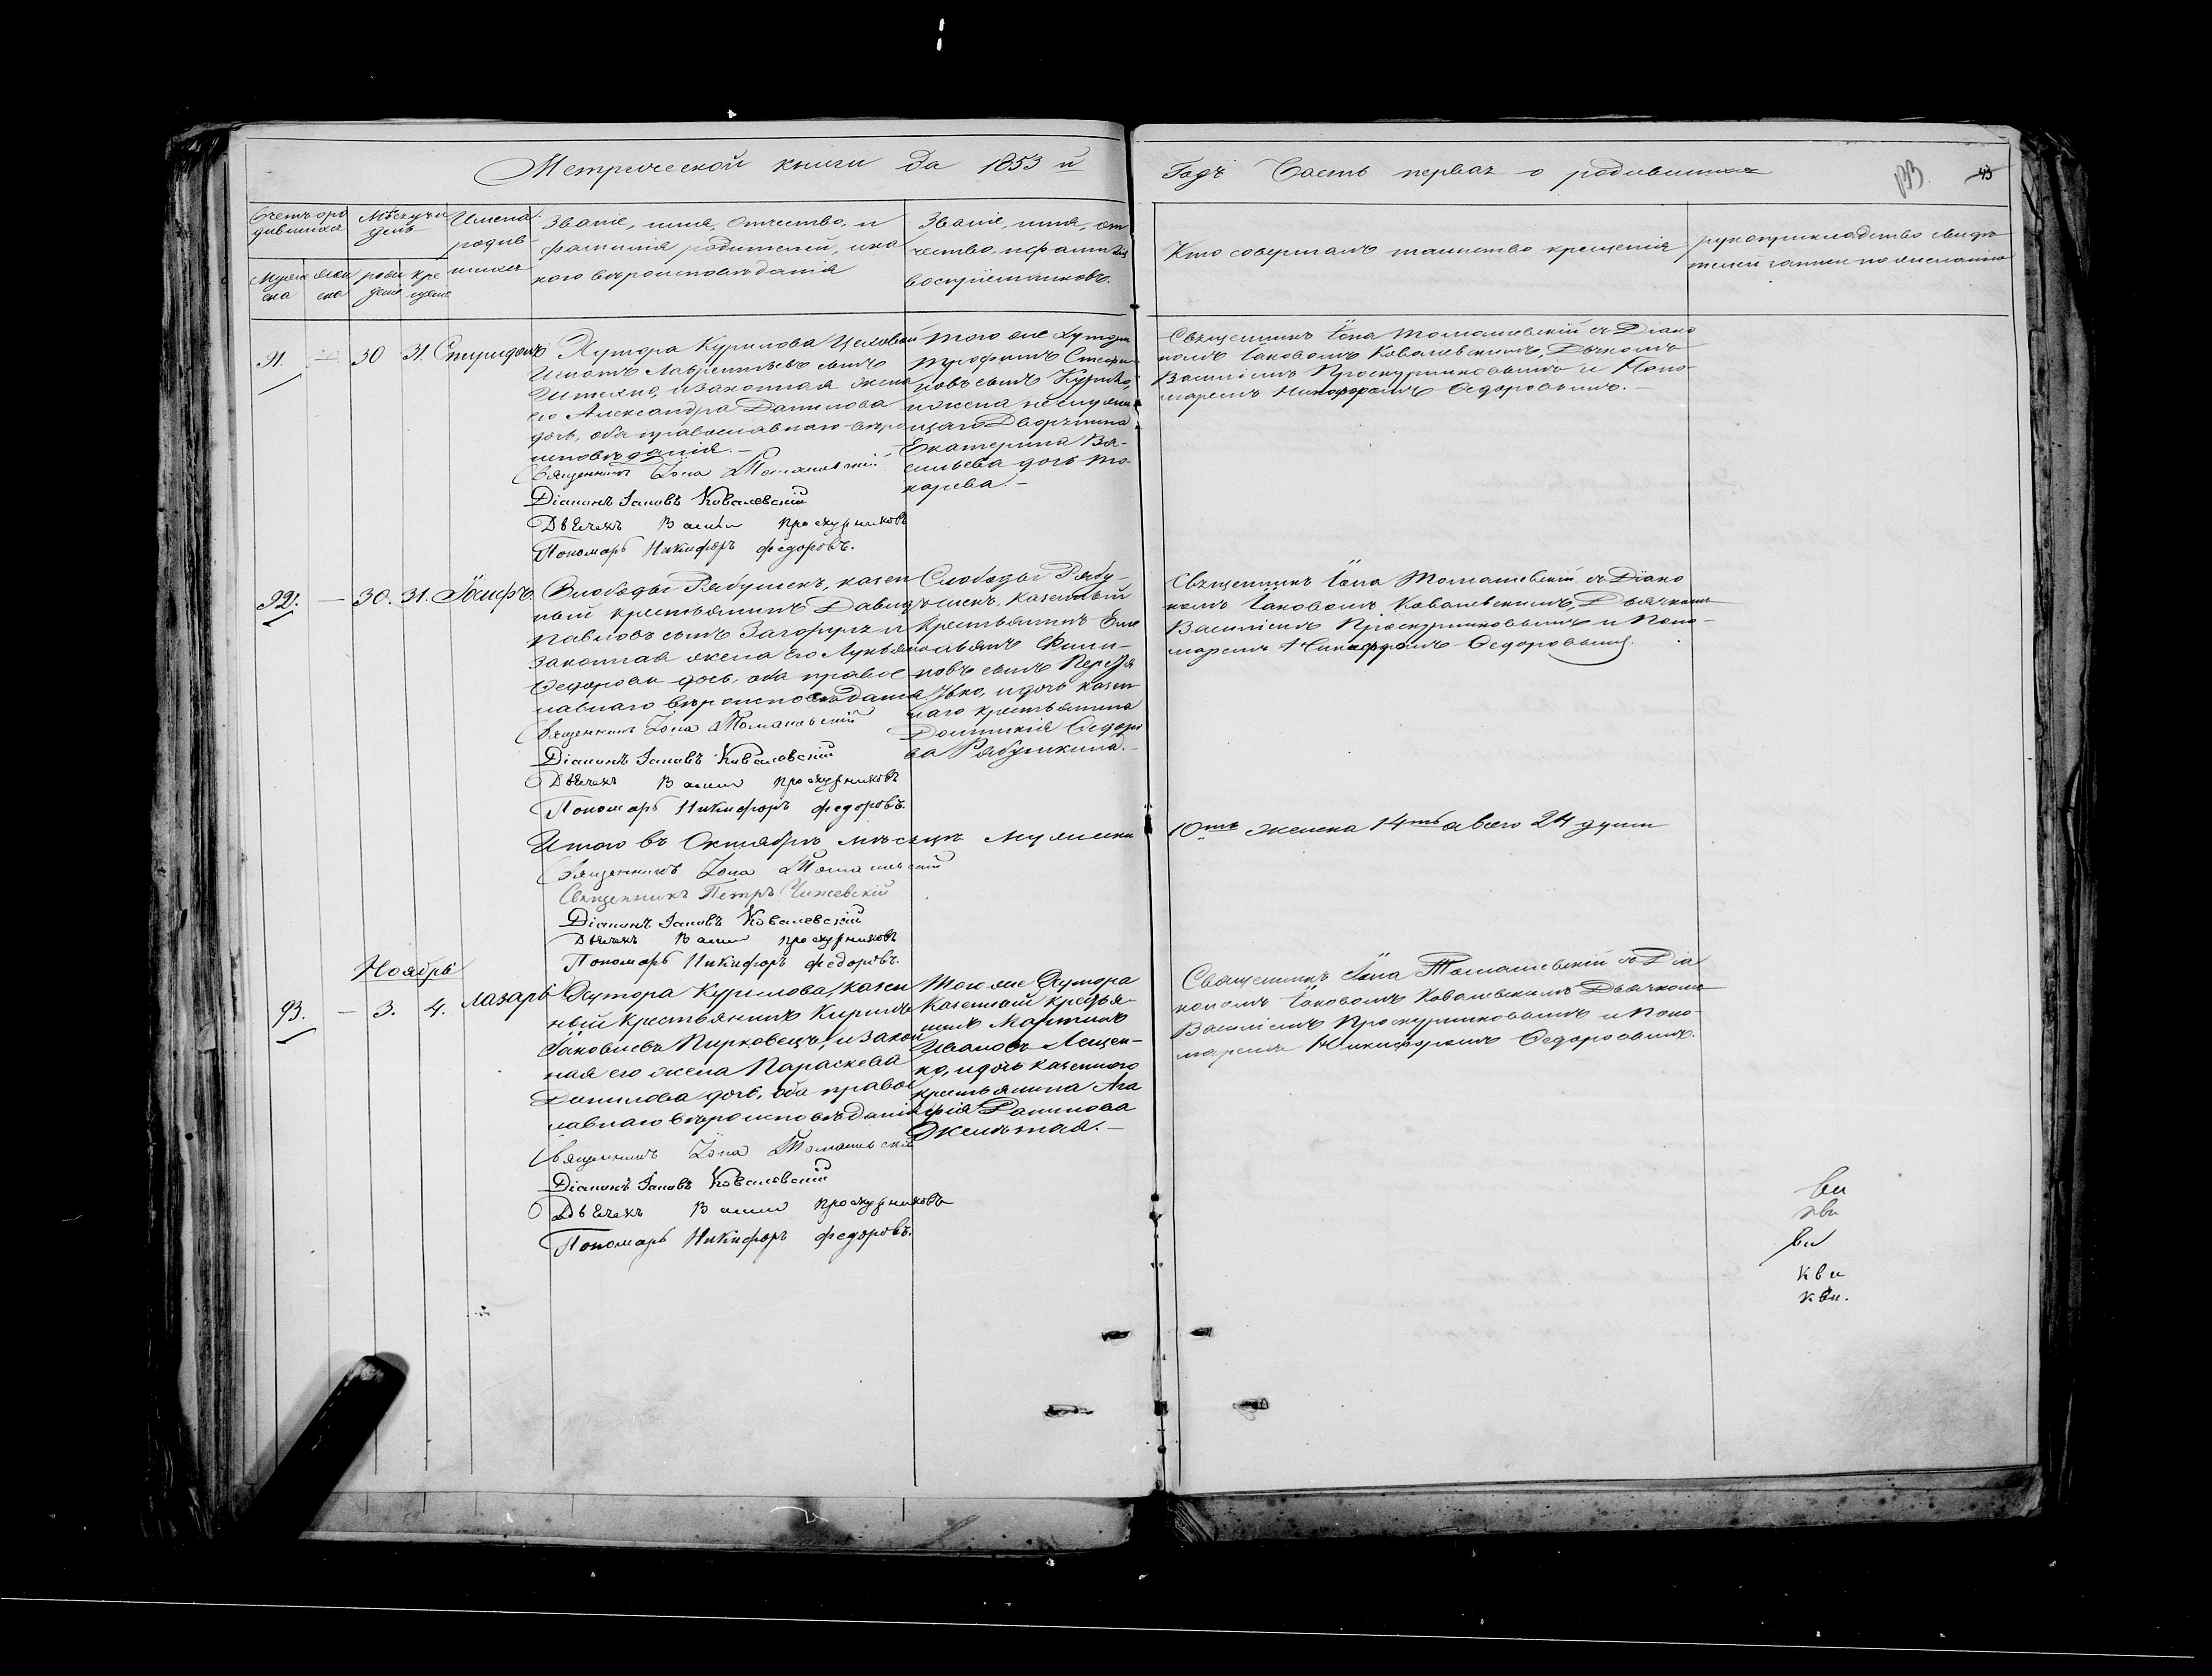 Метрической книги За 1853 й
Годъ Часть первая о родившихся
43
Счетъ родившихся
Мѣсяцъ и день
Имена родившихся
Званіе, имя, отчество, и
фамилія родителей, и ка
кого вѣроисповѣданія
Званіе, имя, от
чество, и фамилія
воспріемниковъ.
Кто совершалъ таинство крещенія
рукоприкладство свидѣ
телей записи по желанію
Мужеска
женска
рожденіе
крещеніе
91. — 30 31. Спиридонъ
Хутора Курилова Цеховой
Игнатъ Лаврентьевъ сынъ
и законная жена
его Александра Данилова
дочь, оба православнаго вѣро
исповѣданія. —
Священникъ Іона Томашевскій
Діаконъ Іаковъ Ковалевскій
Дьячекъ Васили Проскурниковъ
Пономарь Никифоръ Федоровъ.
того же Хутора
Трофимъ Стефа
новъ сынъ Курило,
и жена
Дворянина
Екатерина Ва-
сильева дочь То-
карева. —
Священникъ Іона Томашевскій съ Діако
номъ Іаковомъ Ковалевскимъ, Дьячкомъ
Василіемъ Проскурниковымъ и Поно-
маремъ Никифоромъ Федоровымъ. —
92. — 30. 31. Іосифъ.
Слободы Рябушекъ, казен
ный крестьянинъ Давидъ
Павловъ сынъ и
законная жена его
Федорова дочь, оба правос
лавнаго вѣроисповѣданія
Священникъ Іона Томашевскій
Діаконъ Іаковъ Ковалевскій
Дьячекъ Васили Проскурниковъ
Пономарь Никифоръ Федоровъ.
Слободы Рябу-
шекъ, казенный
крестьянинъ Еме
льянъ Фили-
повъ сынъ
и дочь казен
наго крестьянина
Домникія Федоро
ва Рябушкина. —
Священникъ Іона Томашевскій съ Діако
номъ Іаковомъ Ковалевскимъ, Дьячкомъ
Василіемъ Проскурниковымъ и Поно-
маремъ Никифоромъ Федоровымъ.
Итого въ Октябрѣ мѣсяцѣ мужеска
10ть женска 14ть а всего 24 души
Священникъ Іона Томашевскій
Священникъ Петръ Чижевскій
Діаконъ Іаковъ Ковалевскій
Дьячекъ Васили Проскурниковъ
Пономарь Никифоръ Федоровъ.
Ноябрь
93. — 3. 4. Лазарь
Хутора Курилова казен
ный крестьянинъ Кирилъ
Іаковлевъ Пирковецъ, и закон
ная его жена Параскева
Данилова дочь, оба правос
лавнаго вѣроисповѣданія
Священникъ Іона Томашевскій
Діаконъ Іаковъ Ковалевскій
Дьячекъ Васили Проскурниковъ
Пономарь Никифоръ Федоровъ.
Того же Хутора
казенный крестья-
нинъ Мартинъ
Ивановъ Лещен-
ко, и дочь казенного
крестьянина Ага
фія Данилова
Священникъ Іона Томашевскій съ Діа
кономъ Іаковомъ Ковалевскимъ Дьячкомъ
Василіемъ Проскурниковымъ и Поно-
маремъ Никифоромъ Федоровымъ.